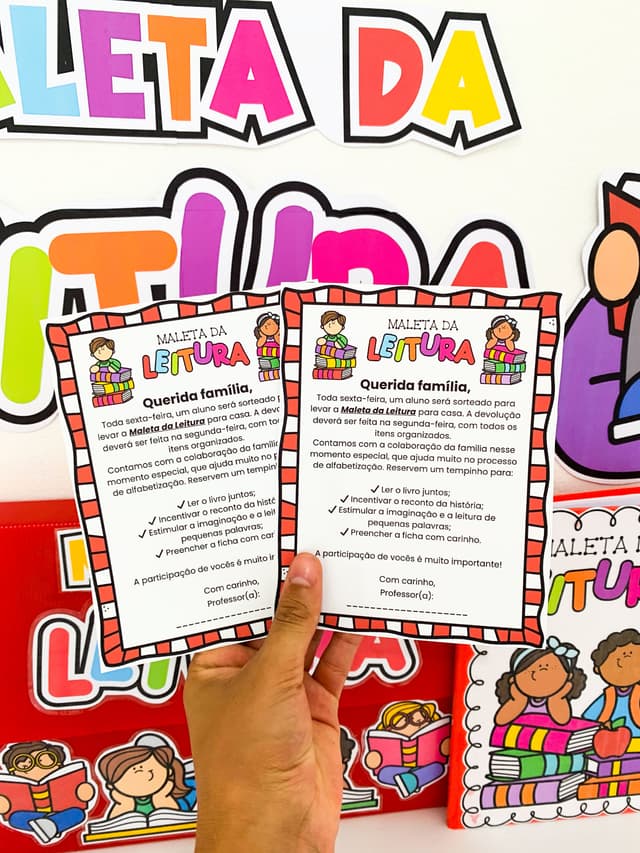 ALETA DA
LEITURA
MALETA DA
LEITURA
Querida família,
Toda sexta-feira, um aluno será sorteado
levar a Maleta da Leitura para casa. A devolução
deverá ser feita na segunda-feira, com todos
itens organizados.
Contamos com a colaboração da família
momento especial, que ajuda muito no
de alfabetização. Reservem um tempinho
✓ Ler o livro juntos;
✓ Incentivar o reconto da
✓ Estimular a imaginação e a
pequenas palavras;
✓ Preencher a ficha com
A participação de vocês é muito
Com carinho,
Professor(a):
MALETA DA
LEITURA
Querida família,
Toda sexta-feira, um aluno será sorteado para
levar a Maleta da Leitura para casa. A devolução
deverá ser feita na segunda-feira, com todos os
itens organizados.
Contamos com a colaboração da família nesse
momento especial, que ajuda muito no processo
de alfabetização. Reservem um tempinho para:
✓ Ler o livro juntos;
✓ Incentivar o reconto da história;
✓ Estimular a imaginação e a leitura de
pequenas palavras;
✓ Preencher a ficha com carinho.
A participação de vocês é muito importante!
Com carinho,
Professor(a):